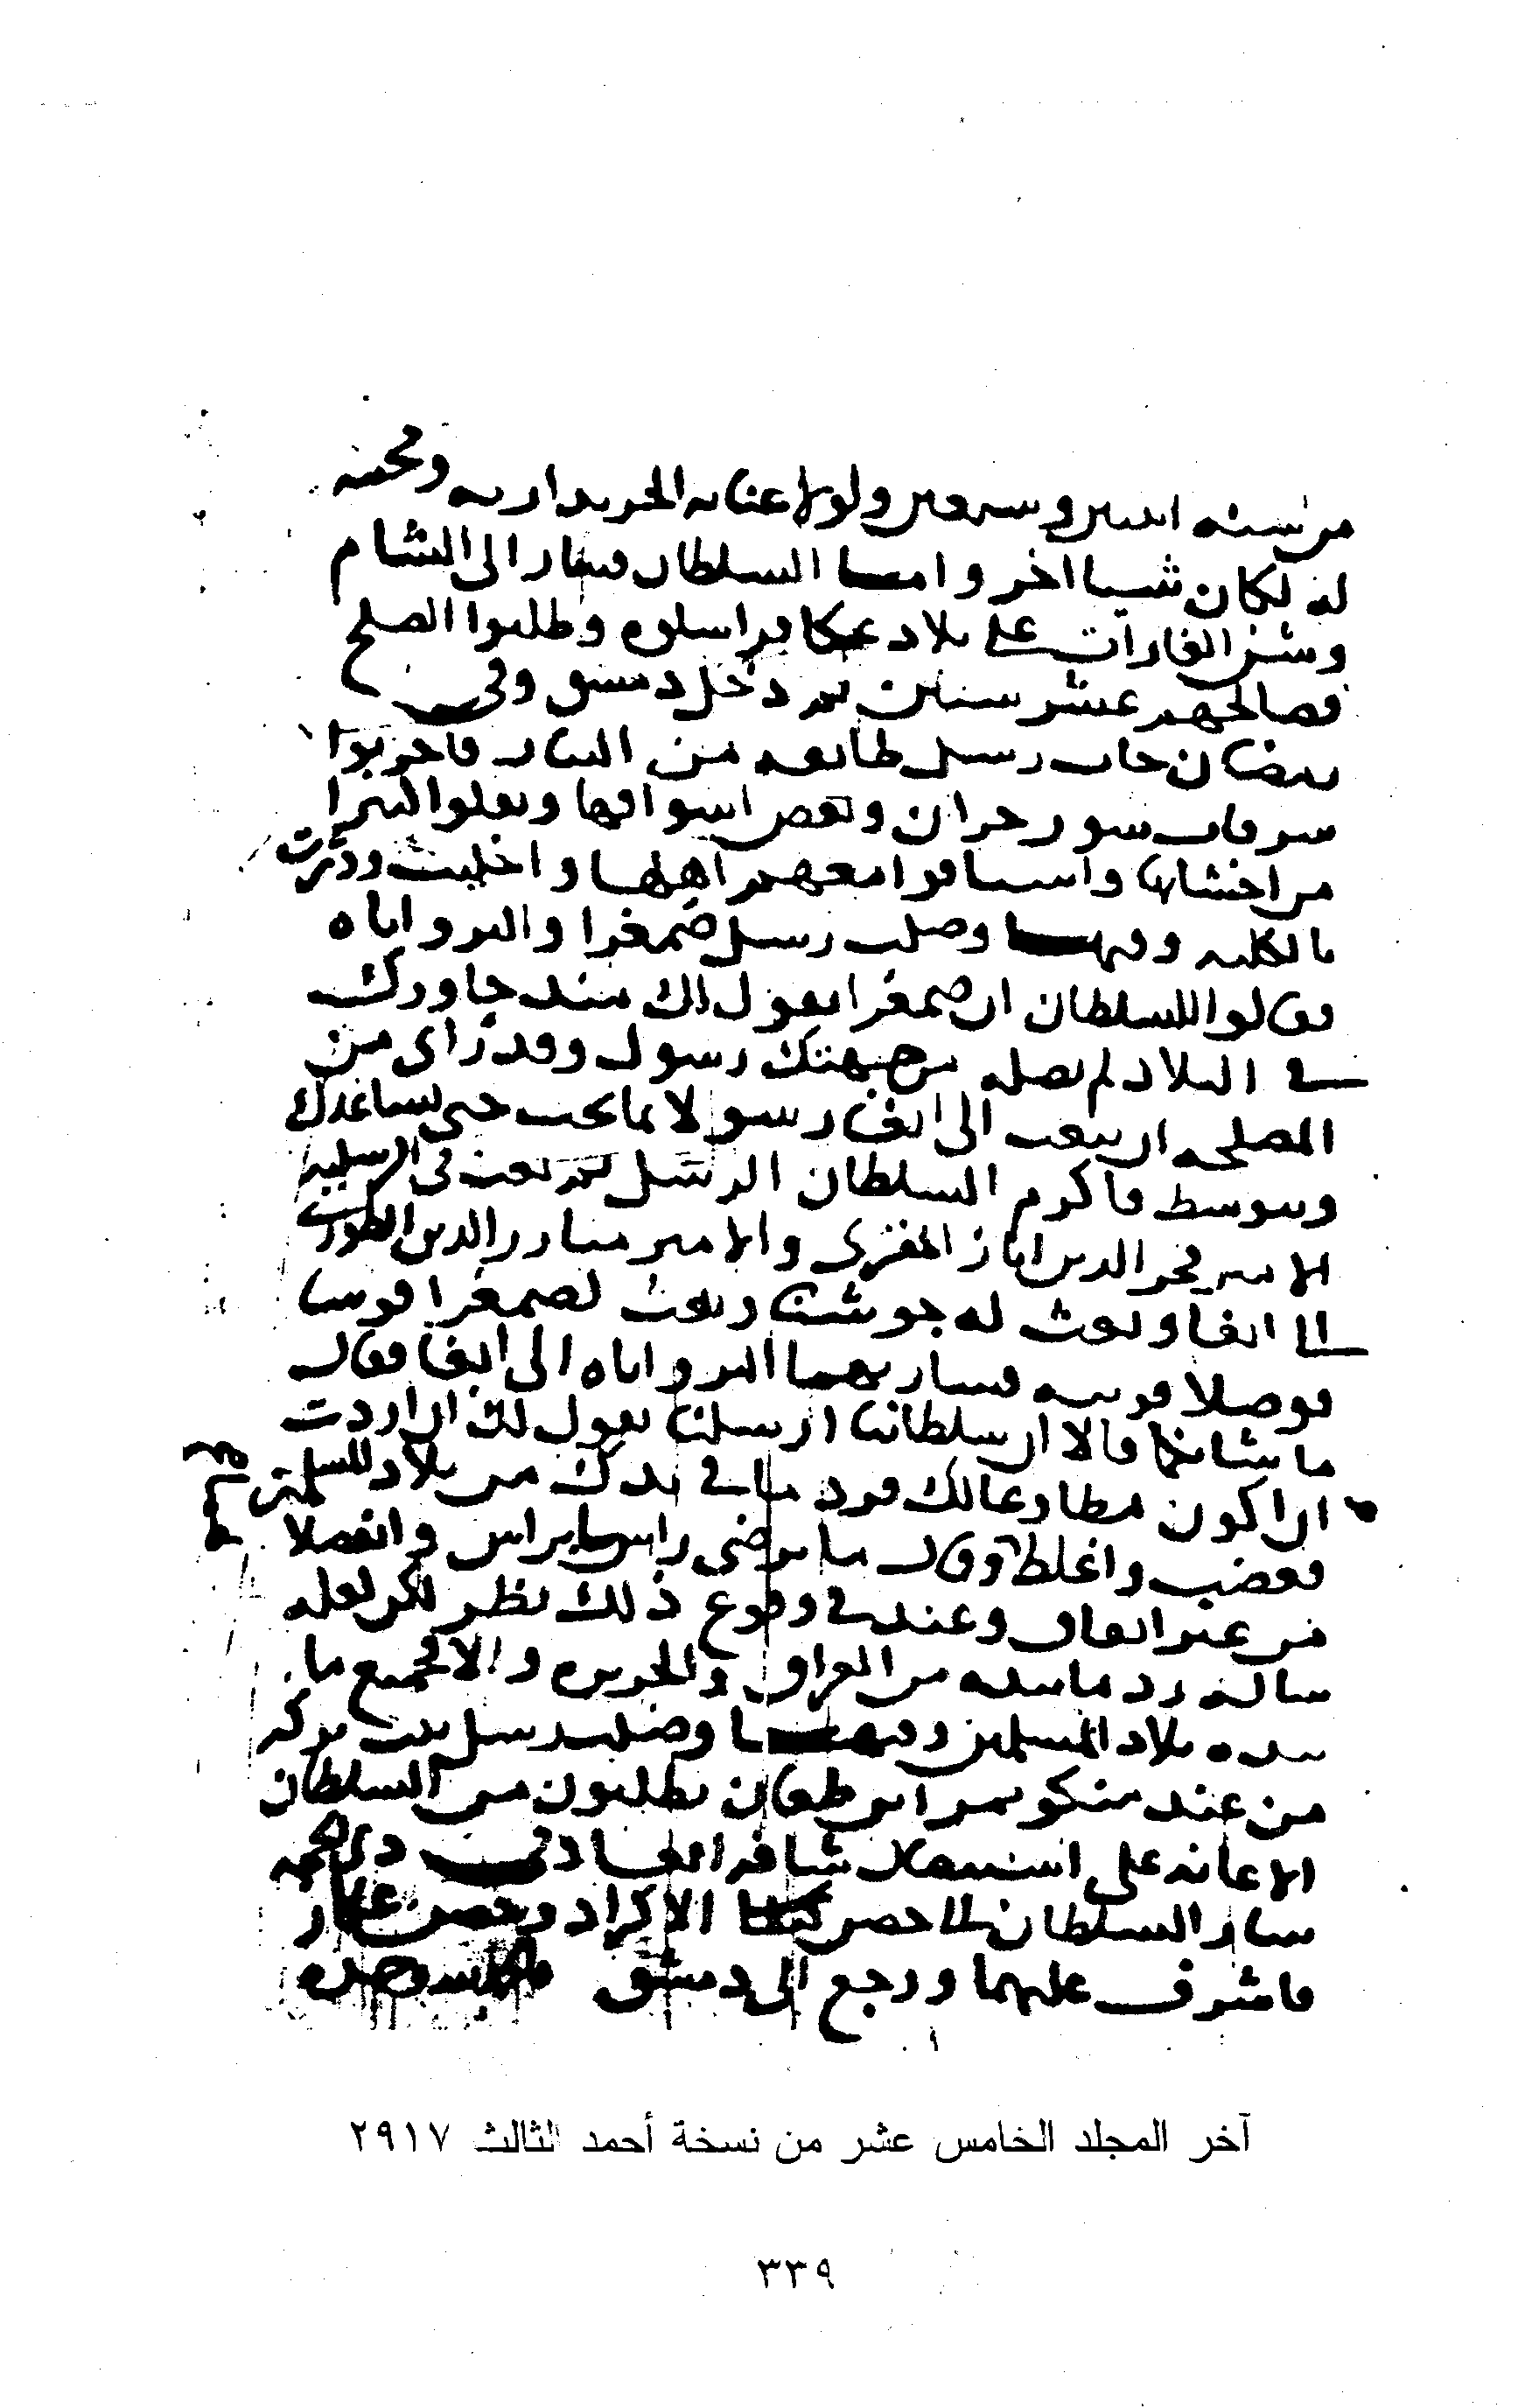 من سنة اثنين وسبعين ولولا عناية الخزنداريه ومحبته
له لكان شيا اخر واما السلطان فسار الى الشام
وشن الغارات على بلاد عكا فراسلوه وطلبوا الصلح
فصالحهم عشر سنين ثم دخل دمشق وفى
رمضان جات رسل طايفه من التتار فاخربوا
شرفات سور حران وبعض اسواقها ونقلوا كثيرا
من اخشابها واستاقوا معهم اهلها واخليت ودثرت
بالكليه وفيها وصلت رسل صمغرا والبرواناه
فقالوا للسلطان ان صمغرا يقول لك منذ جاورك
فى البلاد لم يصله من جهتك رسول وقد راى من
المصلحه ان تبعث الى ابغا رسولا بما تحب حتى يساعدك
ويتوسط فاكرم السلطان الرسل ثم بعث فى الرسليه
الامير فخر الدين اياز المقرى والامير مبارز الدين الطورى
الى ابغا وبعث له جوشنا وبعث لصمغرا قوسا
فوصلا قونيه فسار بهما البرواناه الى ابغا فقال
ما شانكما فقالا ان سلطاننا ارسلنا يقول لك ان اردت
ان اكون مطاوعا لك فرد ما فى يدك من بلاد المسلمين
فغضب واغلظ وقال ما يرضى راس براس وانفصلا
من غير اتفاق وعندى فى وقوع ذلك نظر لكن لعله
ساله رد ما بيده من العراق والجزيره والا فجميع ما
بيده بلاد المسلمين وفيها وصلت رسل بيت بركه
من عند منكوتمر ابن طغان يطلبون من السلطان
الاعانه على استيصال شافة ابغا وفى ذى الحجه
سار السلطان الى حصن الاكراد وحصن عكار
فاشرف عليهما ورجع الى دمشق
آخر المجلد الخامس عشر من نسخة أحمد الثالث ٢٩١٧
٣٣٩